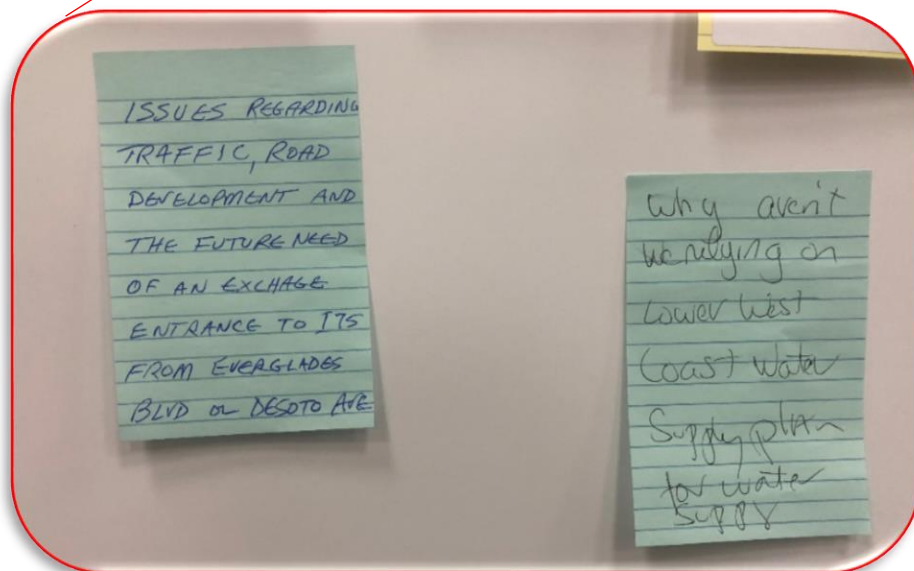 ISSUES REGARDING
TRAFFIC, ROAD
DEVELOPMENT AND
THE FUTURE NEED
OF AN EXCHAGE
ENTRANCE TO I75
FROM EVERGLADES
BLVD OR DESOTO AVE
Why aren't
we relying on
Lower West
Coast Water
Supply plan
for water
Suppy